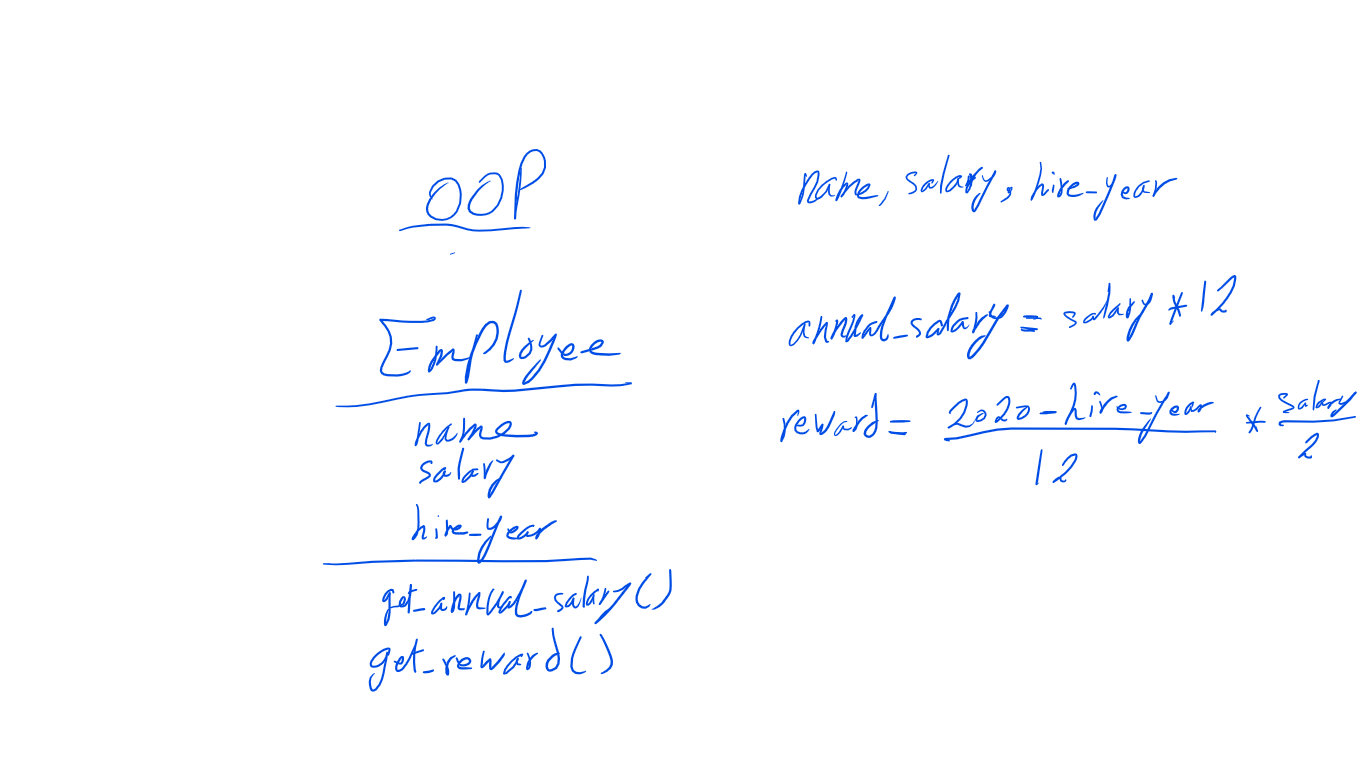 OOP
Employee
name
salary
hire_year
get_annual_salary()
get_reward()
name, salary, hire_year
annual_salary = salary * 12
reward = 2020 - hire_year / 12 * salary / 2